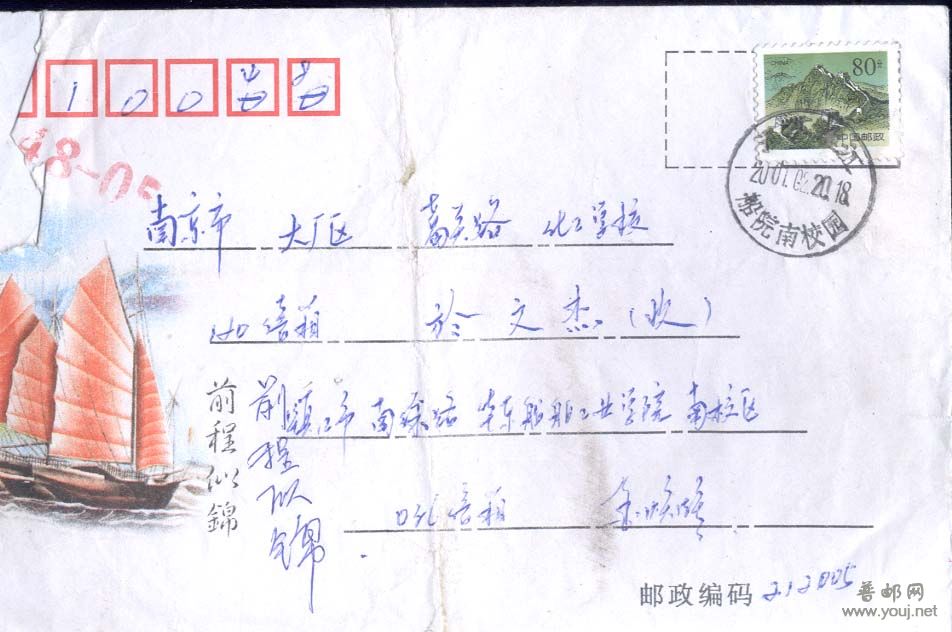 1 0 0 4 8
CHINA
80分
中国邮政
江
2001.02.20.18
船院南校园
48-05
南京市 大厂区 化工学校
信箱 於文杰(收)
前程似錦
前程似锦
镇江市 南徐路 华东船舶工业学院 南校区
信箱
邮政编码 212005
普邮网
www.youj.net